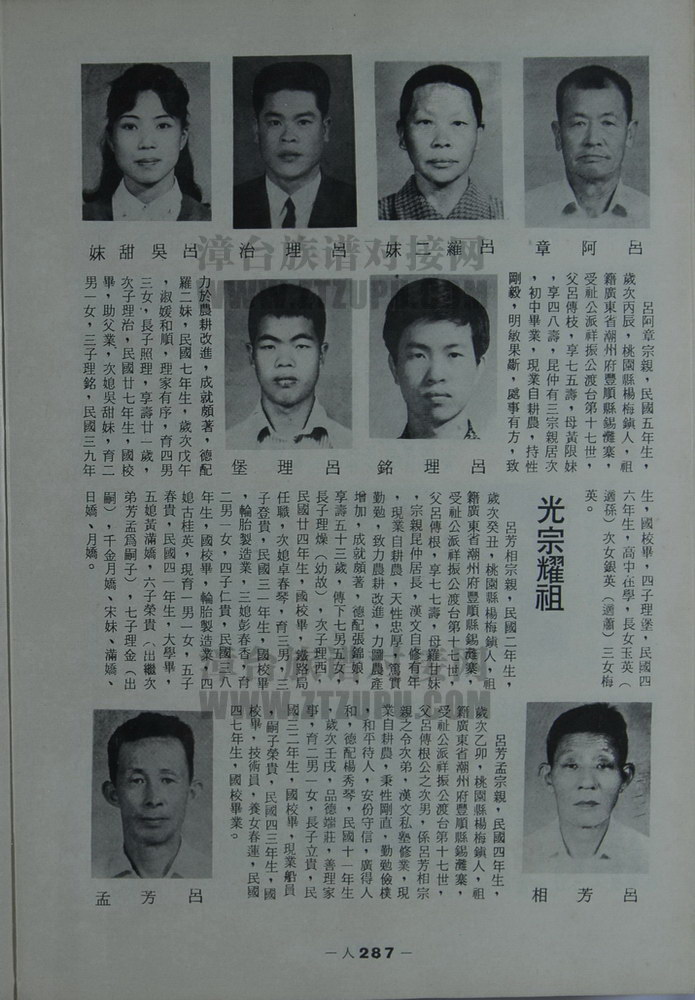 呂阿章
呂羅二妹
呂理治
呂吳甜妹
呂阿章宗親，民國五年生，
歲次丙辰，桃園縣楊梅鎮人，祖
籍廣東省潮州府豐順縣錫灘寨，
受祉公派祥振公渡台第十七世，
父呂傳枝，享七五壽，母黃限妹
，享四八壽，昆仲有三宗親居次
，初中畢業，現業自耕農，持性
剛毅，明敏果斷，處事有方，致
呂理銘
呂理堡
力於農耕改進，成就頗著，德配
羅二妹，民國七年生，歲次戊午
，淑媛和順，理家有序，育四男
三女，長子照理，享壽廿一歲，
次子理治，民國廿七年生，國校
畢，助父業，次媳吳甜妹，育二
男一女，三子理銘，民國三九年
生，國校畢，四子理堡，民國四
六年生，高中在學，長女玉英（
適孫）次女銀英（適蕭）三女梅
英。
光宗耀祖
呂芳相宗親，民國二年生，
歲次癸丑，桃園縣楊梅鎮人，祖
籍廣東省潮州府豐順縣錫灘寨，
受祉公派祥振公渡台第十七世，
父呂傳根，享七七壽，母羅生妹
，宗親昆仲居長，漢文自修有年
，現業自耕農，天性忠厚，篤實
勤勉，致力農耕改進，力圖農產
增加，成就頗著，德配張錦娘，
享壽五十三歲，傳下七男五女，
長子理燥（幼故），次子理西，
民國廿四年生，國校畢，鐵路局
任職，次媳卓春琴，育三男，三
子登貴，民國三一年生，國校畢
，輪胎製造業，三媳彭春香，育
二男一女，四子仁貴，民國三八
年生，國校畢，輪胎製造業，四
媳古桂英，現育一男一女，五子
春貴，民國四一年生，大學畢，
五媳黃滿嬌，六子榮貴（出繼次
弟芳孟為嗣子），七子理金（出
嗣），千金月嬌、宋妹、滿嬌、
日嬌、月嬌。
呂芳相
呂芳孟宗親，民國四年生，
歲次乙卯，桃園縣楊梅鎮人，祖
籍廣東省潮州府豐順縣錫灘寨，
受祉公派祥振公渡台第十七世，
父呂傳根公之次男，係呂芳相宗
親之令次弟，漢文私塾修業，現
業自耕農，秉性剛直，勤勉儉樸
，和平待人，安份守信，廣得人
和，德配楊秀琴，民國十一年生
，歲次壬戌，品德端莊，善理家
事，育二男一女，長子立貴，民
國三二年生，國校畢，現業船員
，嗣子榮貴，民國四三年生，國
校畢，技術員，養女春蓮，民國
四七年生，國校畢業。
呂芳孟
漳台族谱对接网
WWW.ZTZUPU.COM
漳台族谱对接网
WWW.ZTZUPU.COM
－人287－